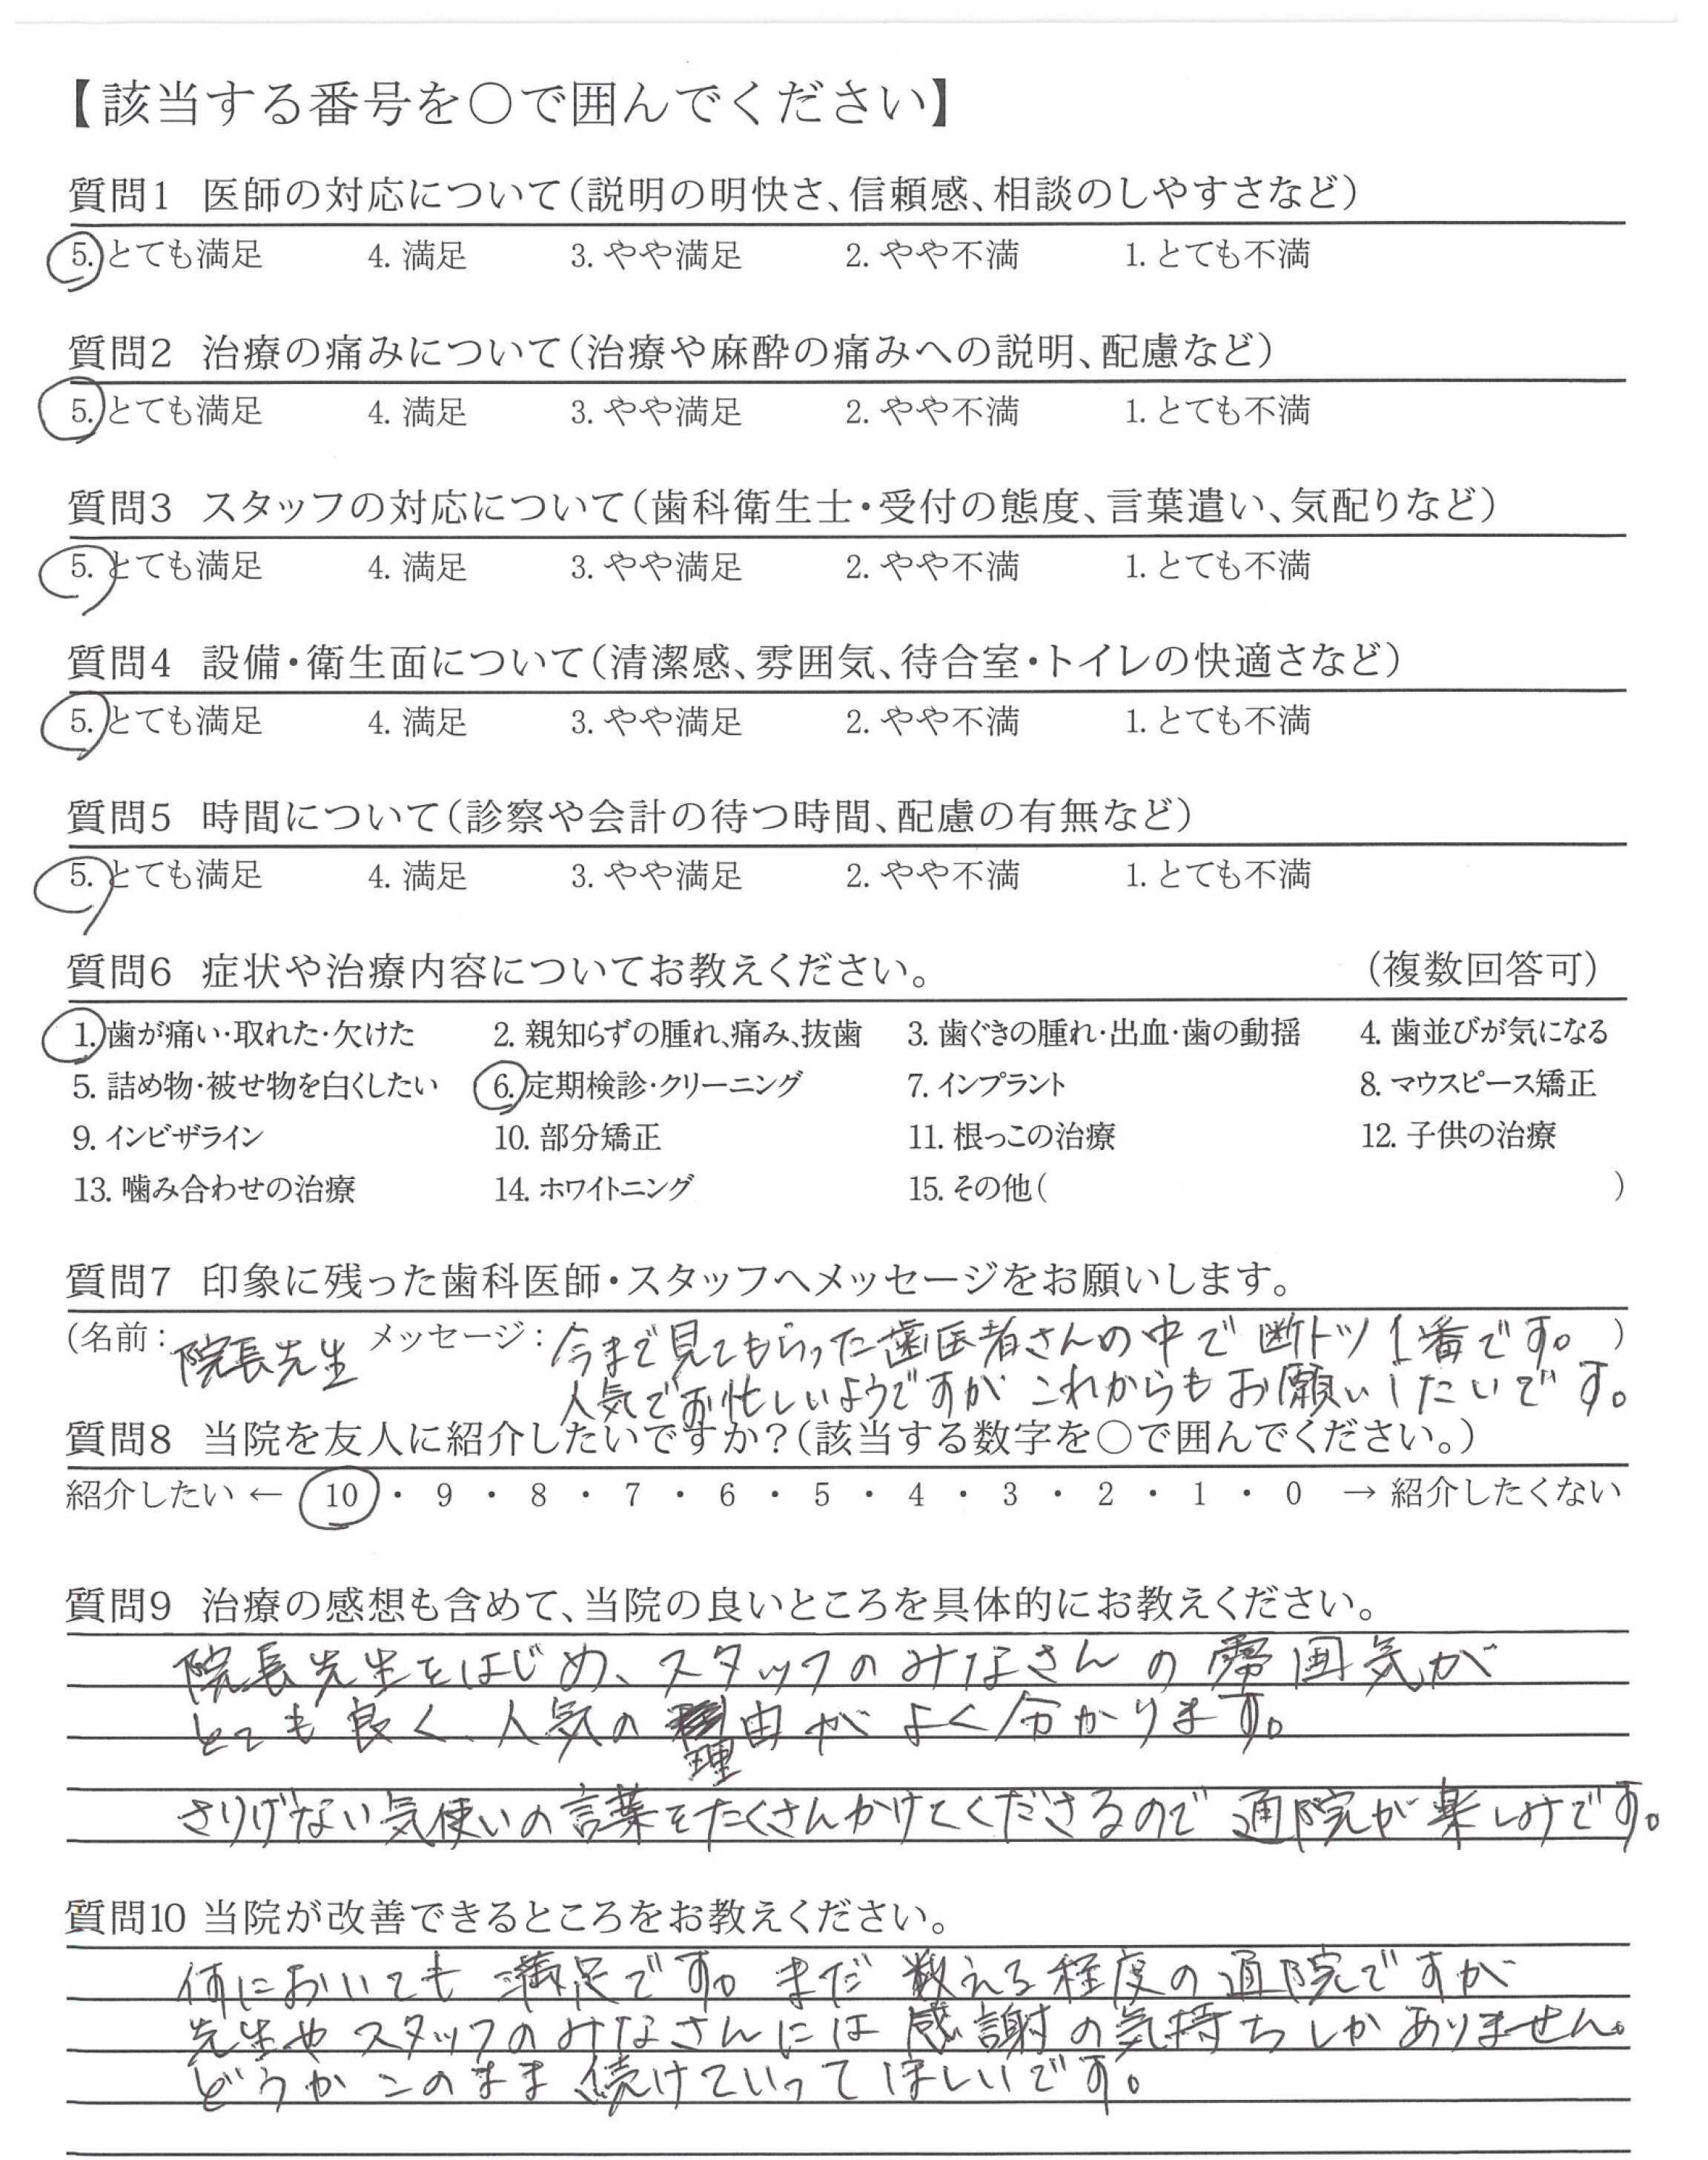 【該当する番号を○で囲んでください】
質問1 医師の対応について(説明の明快さ、信頼感、相談のしやすさなど)
5. とても満足 4. 満足 3. やや満足 2. やや不満 1. とても不満
質問2 治療の痛みについて(治療や麻酔の痛みへの説明、配慮など)
5. とても満足 4. 満足 3. やや満足 2. やや不満 1. とても不満
質問3 スタッフの対応について(歯科衛生士・受付の態度、言葉遣い、気配りなど)
5. とても満足 4. 満足 3. やや満足 2. やや不満 1. とても不満
質問4 設備・衛生面について(清潔感、雰囲気、待合室・トイレの快適さなど)
5. とても満足 4. 満足 3. やや満足 2. やや不満 1. とても不満
質問5 時間について(診察や会計の待つ時間、配慮の有無など)
5. とても満足 4. 満足 3. やや満足 2. やや不満 1. とても不満
質問6 症状や治療内容についてお教えください。 (複数回答可)
1. 歯が痛い・取れた・欠けた 2. 親知らずの腫れ、痛み、抜歯 3. 歯ぐきの腫れ・出血・歯の動揺 4. 歯並びが気になる
5. 詰め物・被せ物を白くしたい 6. 定期検診・クリーニング 7. インプラント 8. マウスピース矯正
9. インビザライン 10. 部分矯正 11. 根っこの治療 12. 子供の治療
13. 噛み合わせの治療 14. ホワイトニング 15. その他( )
質問7 印象に残った歯科医師・スタッフへメッセージをお願いします。
(名前: 院長先生 メッセージ: 今まで見てもらった歯医者さんの中で断トツ1番です。 )
人気でお忙しいようですがこれからもお願いしたいです。
質問8 当院を友人に紹介したいですか?(該当する数字を○で囲んでください。)
紹介したい ← 10 ・ 9 ・ 8 ・ 7 ・ 6 ・ 5 ・ 4 ・ 3 ・ 2 ・ 1 ・ 0 → 紹介したくない
質問9 治療の感想も含めて、当院の良いところを具体的にお教えください。
院長先生をはじめ、スタッフのみなさんの雰囲気が
とても良く、人気の理由がよく分かります。
さりげない気使いの言葉をたくさんかけてくださるので通院が楽しみです。
質問10 当院が改善できるところをお教えください。
何においても満足です。まだ数える程度の通院ですが
先生やスタッフのみなさんには感謝の気持ちしかありません。
どうかこのまま続けていってほしいです。